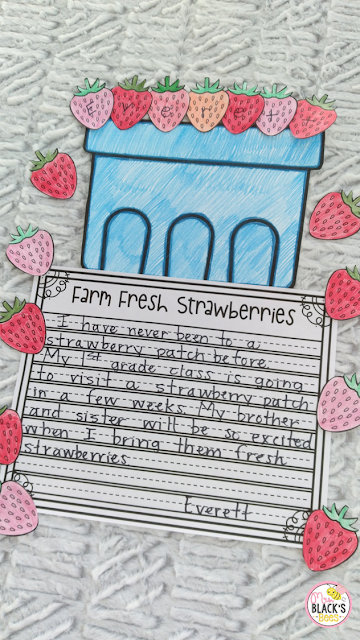 Everett
Farm Fresh Strawberries
I have never been to a
strawberry patch before.
My 1st grade class is going
to visit a strawberry patch
in a few weeks. My brother
and sister will be so excited
when I bring them fresh
strawberries
Everett
Mrs.
BLACK'S
Bees